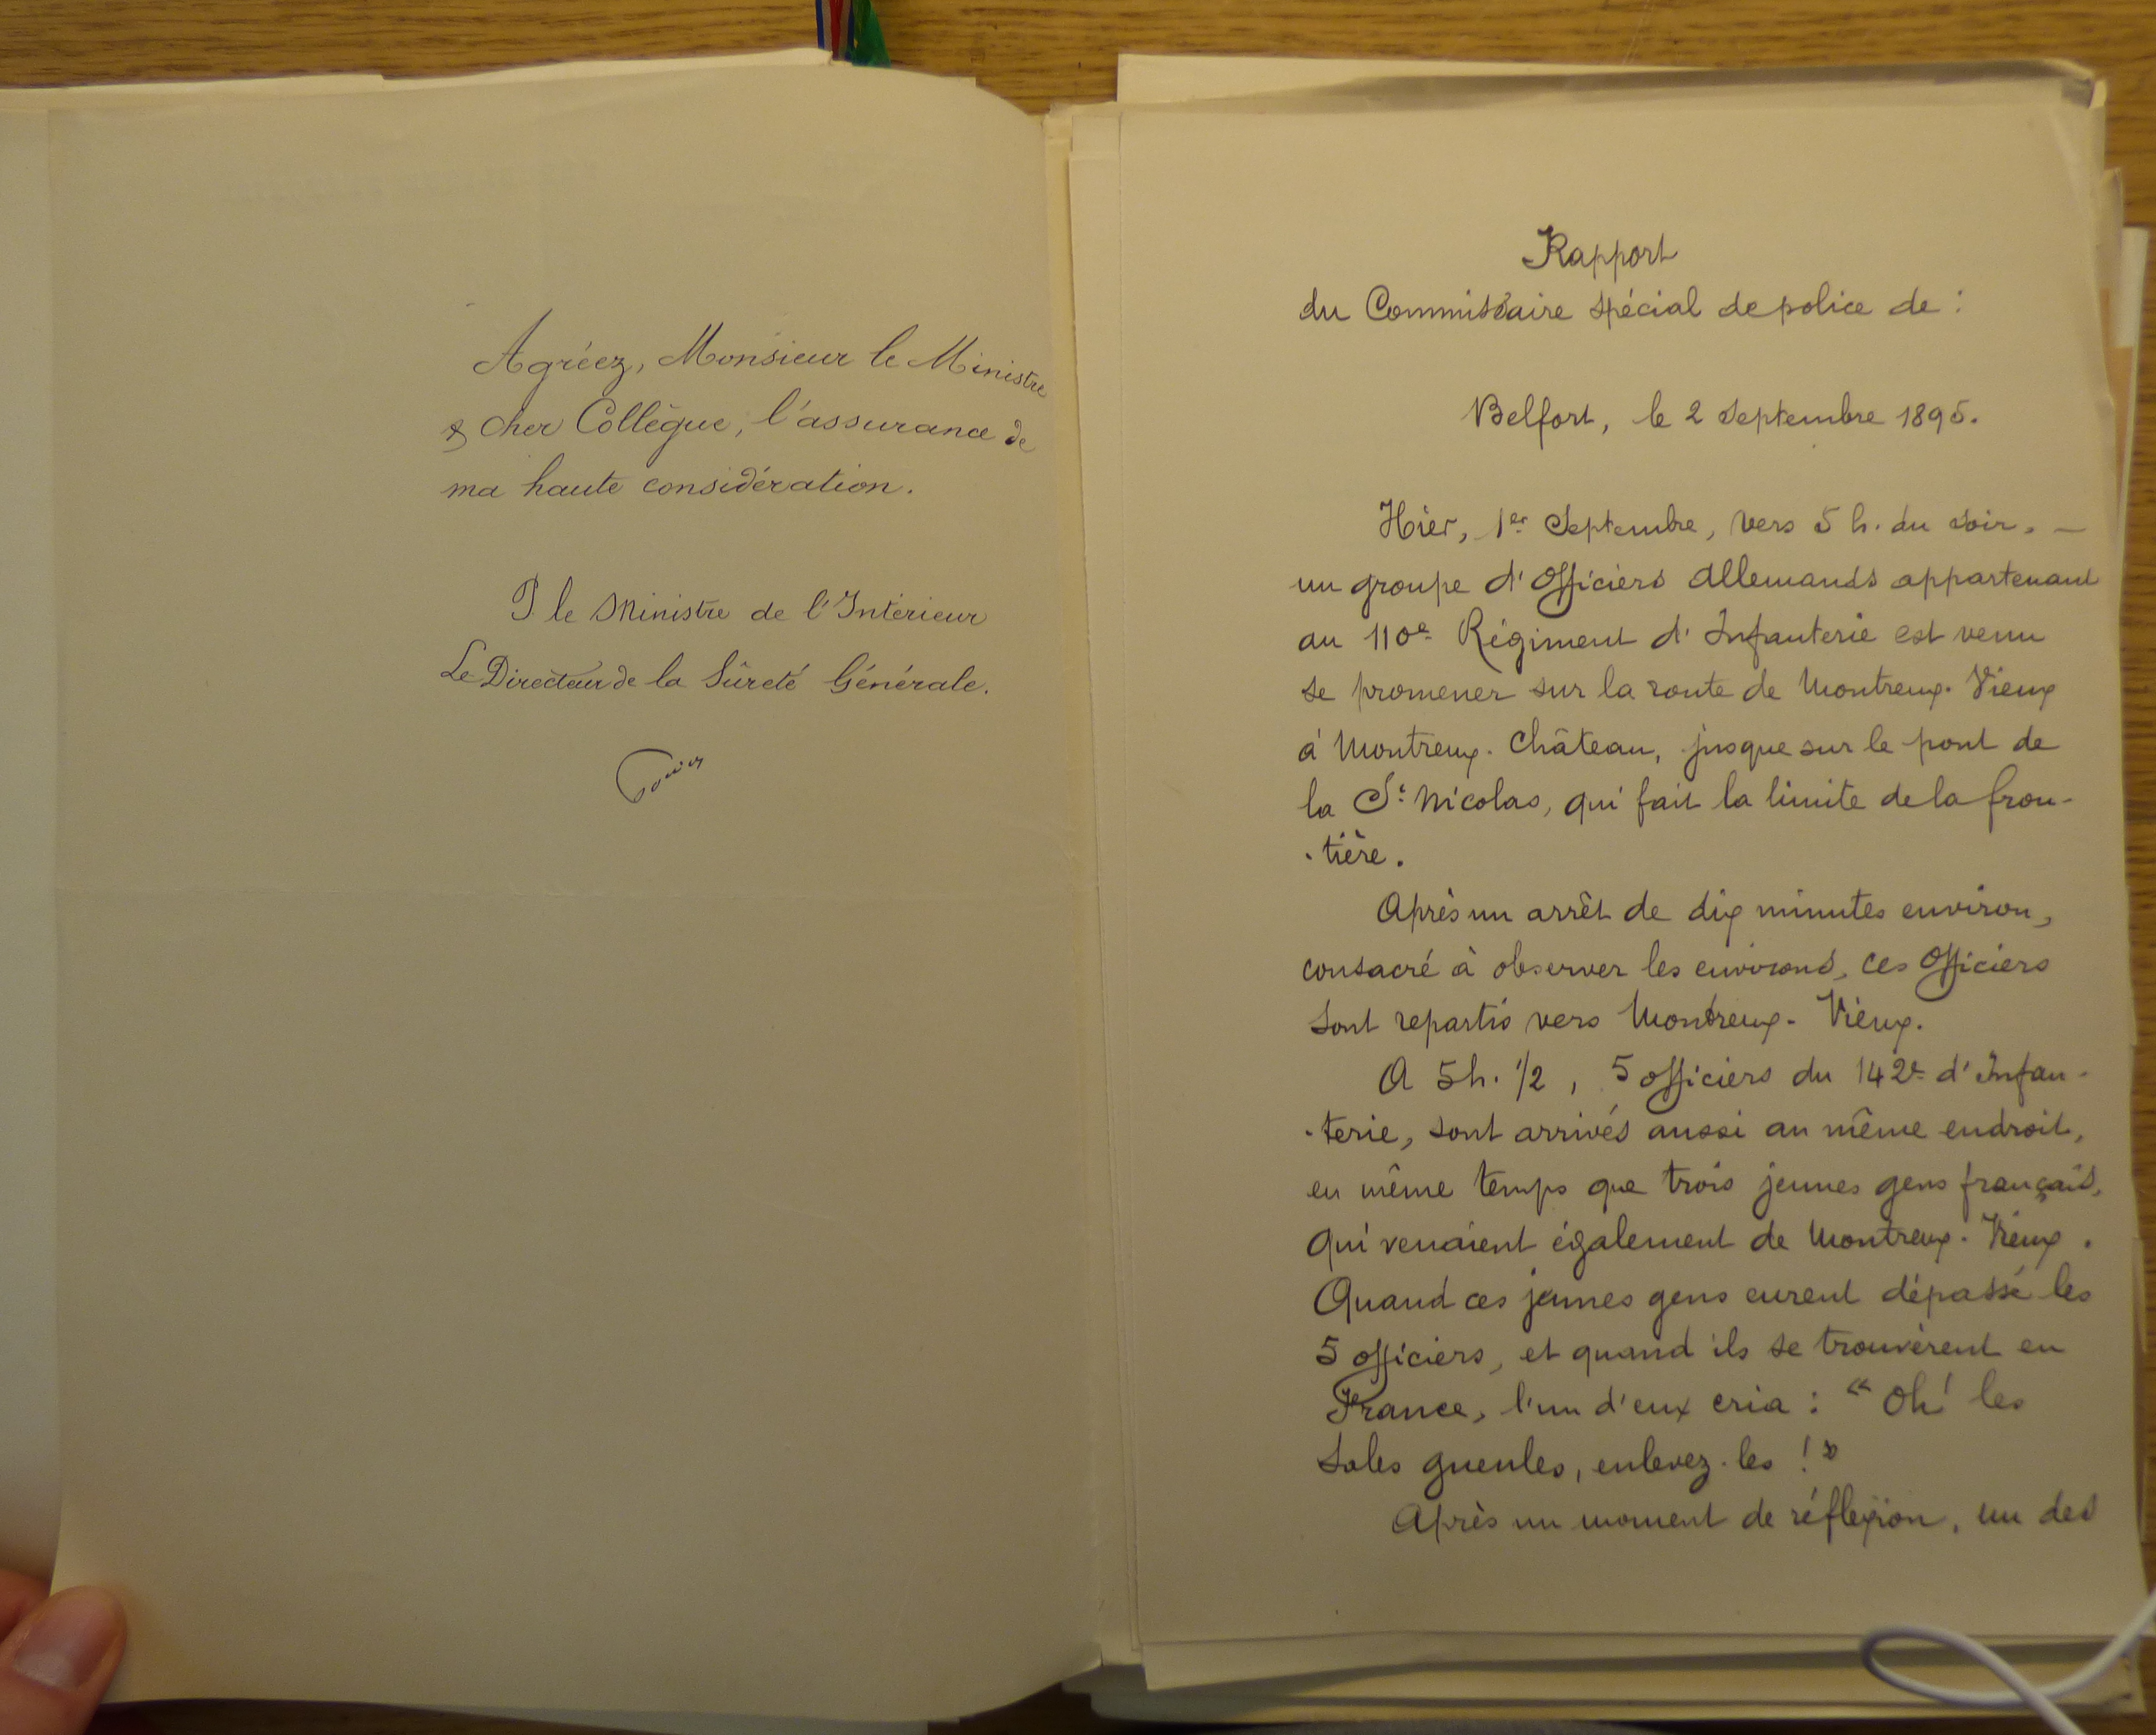 Agréez, Monsieur le Ministre
& cher Collègue, l'assurance de
ma haute considération.
P le Ministre de l'Intérieur
Le Directeur de la Sûreté Générale.
Rapport
du Commissaire spécial de police de :
Belfort, le 2 Septembre 1895.
Hier, 1er Septembre, vers 5 h. du soir, —
un groupe d'Officiers Allemands appartenant
au 110e Régiment d'Infanterie est venu
se promener sur la route de Montreux-Vieux
à Montreux-Château, jusque sur le pont de
la St Nicolas, qui fait la limite de la fron-
-tière.
Après un arrêt de dix minutes environ,
consacré à observer les environs, ces Officiers
sont repartis vers Montreux-Vieux.
A 5h. 1/2, 5 officiers du 142e d'Infan-
-terie, sont arrivés aussi au même endroit,
en même temps que trois jeunes gens français,
qui venaient également de Montreux-Vieux.
Quand ces jeunes gens eurent dépassé les
5 officiers, et quand ils se trouvèrent en
France, l'un d'eux cria : "Oh! les
sales gueules, enlevez-les !"
Après un moment de réflexion, un des